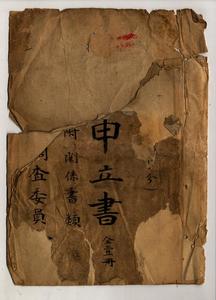 申立書
全壹冊
附関係書類
調査委員